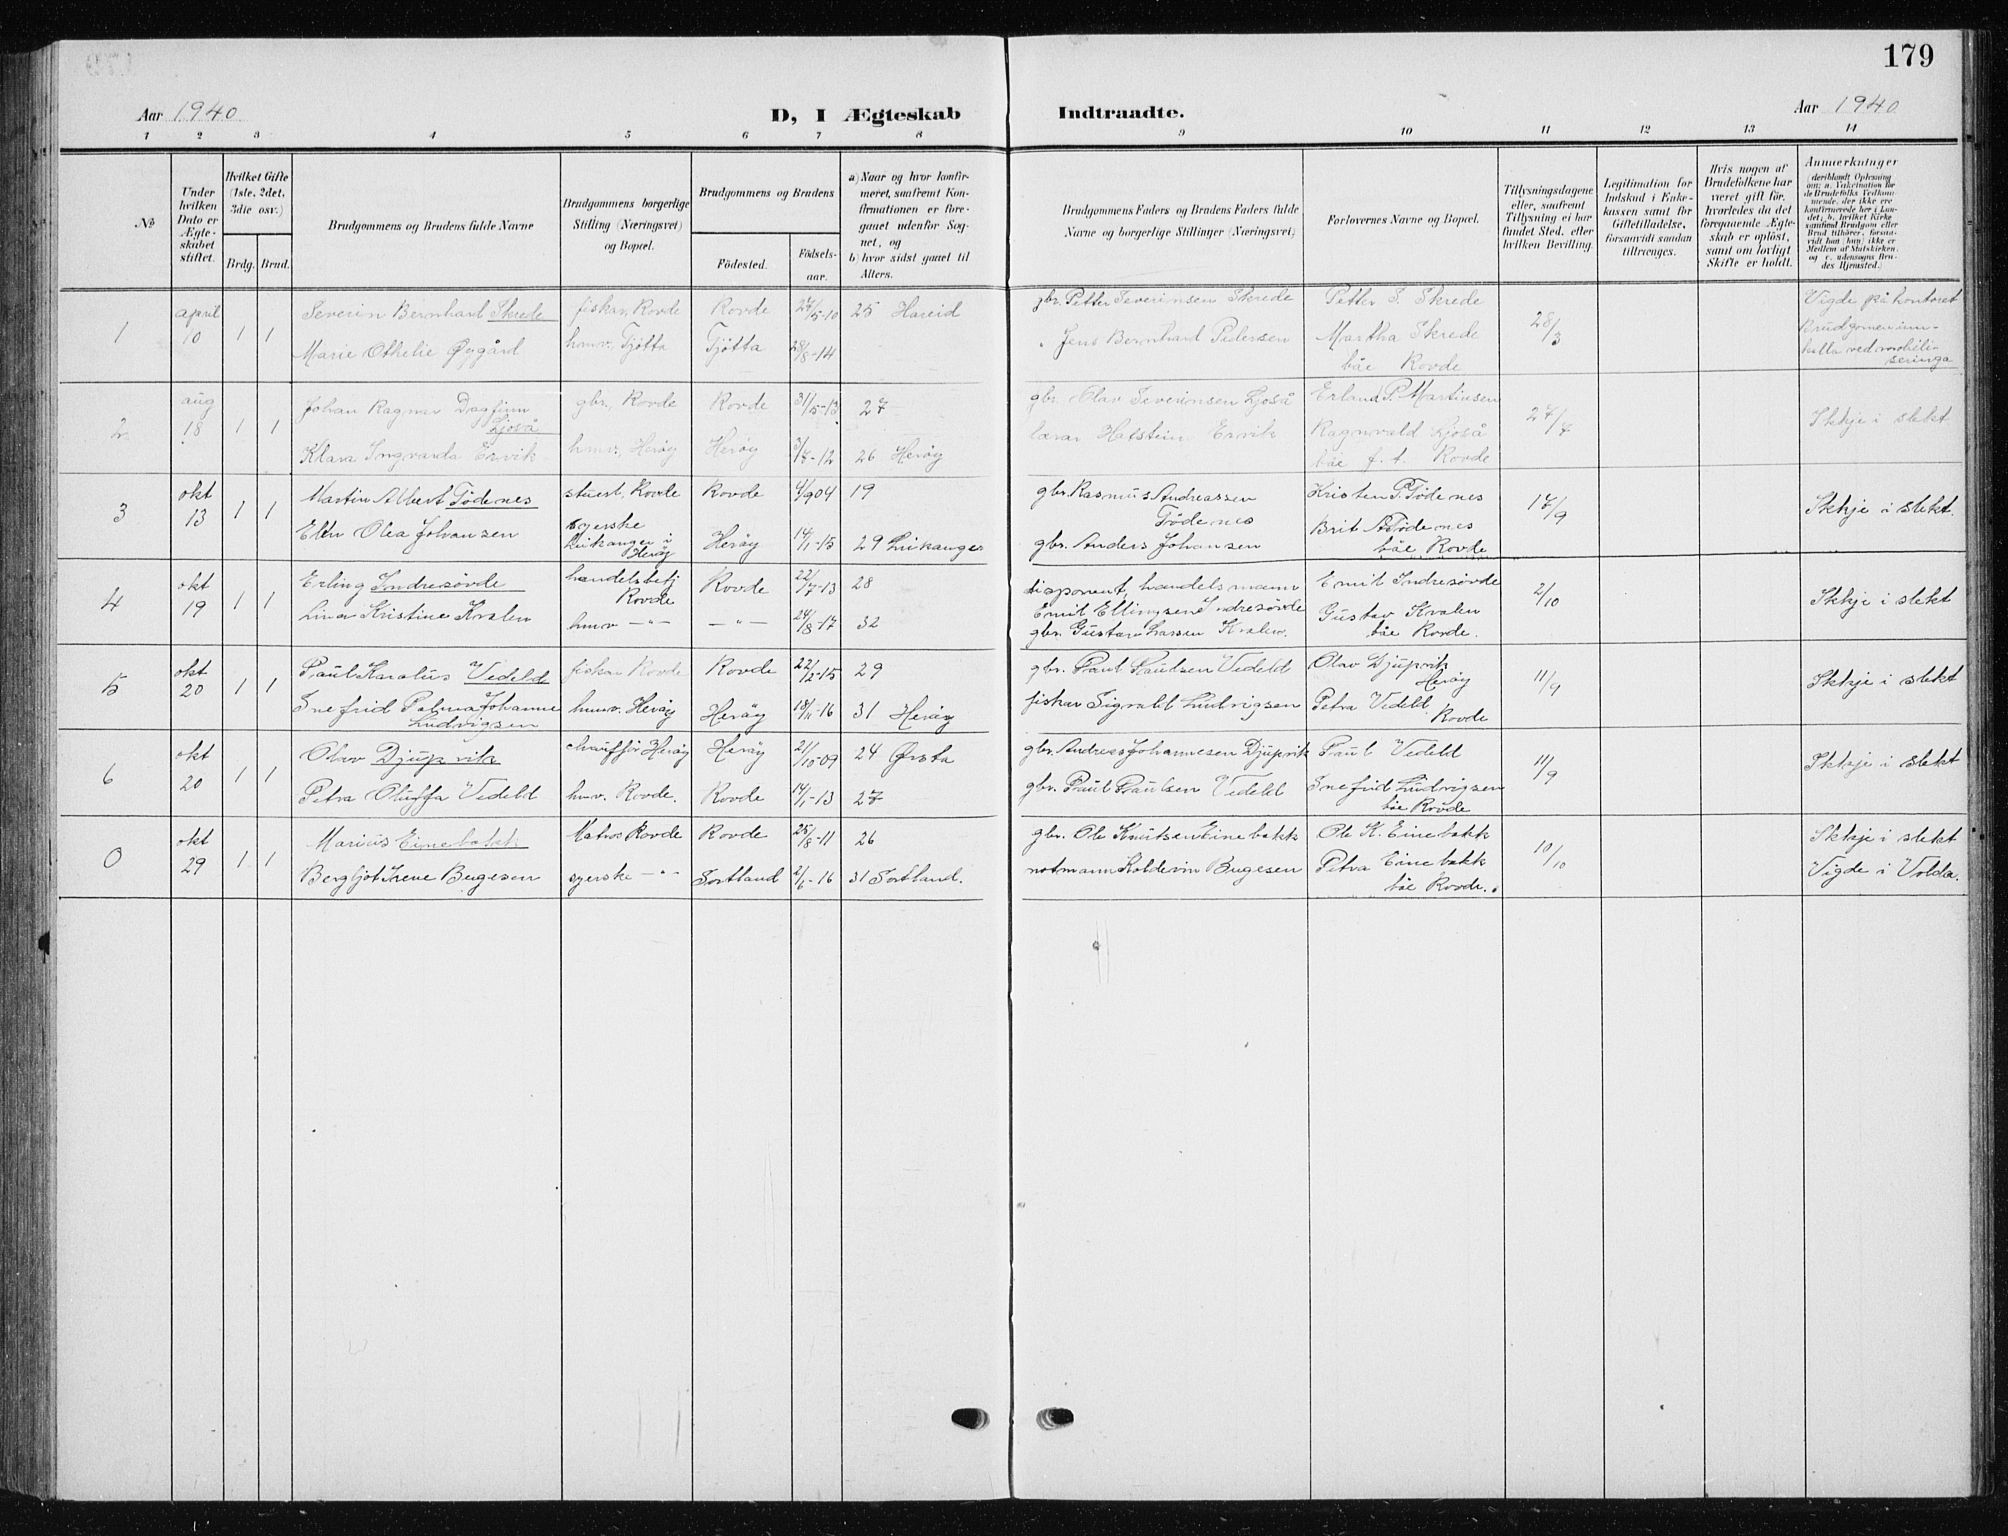 179
Aar 1940
D, I Ægteskab Indtraadte.
Aar 1940
1 2 3 4 5 6 7 8 9 10 11 12 13 14
No
Under hvilken Dato er Ægteskabet stiftet.
Hvilket Gifte (1ste, 2det, 3die osv.)
Brdg. Brud.
Brudgommens og Brudens fulde Navne
Brudgommens borgerlige Stilling (Næringsvei) og Bopæl.
Brudgommens og Brudens
Födested.
Födselsaar.
a) Naar og hvor konfirmeret, saafremt Konfirmationen er foregaaet udenfor Sognet, og
b) hvor sidst gaaet til Alters.
Brudgommens Faders og Brudens Faders fulde Navne og borgerlige Stillinger (Næringsvei)
Forlovernes Navne og Bopæl.
Tillysningsdagene eller, saafremt Tillysning ei har fundet Sted, efter hvilken Bevilling.
Legitimation for Indskud i Enkekassen samt for Giftetilladelse, forsaavidt saadan tiltrænges.
Hvis nogen af Brudefolkene har været gift før, hvorledes da det foregaaende Ægteskab er opløst, samt om lovligt Skifte er holdt.
Anmerkninger
(deriblandt Oplysning om: a. Vakcination for de Brudefolks Vedkommende, der ikke ere konfirmerede her i Landet; b. hvilket Kirkesamfund Brudgom eller Brud tilhører, forsaavidt han (hun) ikke er Medlem af Statskirken, og c. udensogns Brudes Hjemsted.)
1 april 10 1 1
Severin Bernhard Skrede fiskar, Rovde Rovde 27/5-10 25 Hareid gbr. Petter Severinsen Skrede Petter S. Skrede 28/3 Vigde på kontoret
Marie Othelie Øygård hmv. Tjötta Tjötta 28/8-14 " Jens Bernhard Pedersen Martha Skrede Brudgomen innkalla ved mobiliseringa
båe Rovde
2 aug 18 1 1
Johan Ragnar Dagfinn Ljoså gbr., Rovde Rovde 31/5-13 27 gbr. Olav Severinsen Ljoså Erland P. Martinsen 27/7 Ikkje i slekt
Klara Ingvarda Ervik hmv. Herøy Herøy 3/7-12 26 Herøy lærar Halstein Ervik Ragnvald Ljoså
båe f. t. Rovde
3 okt 13 1 1
Martin Albert Tødenes stuert, Rovde Rovde 4/9 04 19 gbr. Rasmus Andreassen Tødenes Kristen P. Tødenes 17/9 Ikkje i slekt.
Ellen Olea Johansen syerske Leikanger i Herøy Herøy 14/1-15 29 Leikanger gbr. Anders Johansen Brit A Tødenes
båe Rovde
4 okt 19 1 1
Erling Indresövde handelsbetj Rovde Rovde 22/7-13 28 disponent, handelsmann Emil Ellingsen Indresövde Emil Indresövde 2/10 Ikkje i slekt
Lina Kristine Kvalen hmv — " — — " — 24/8-17 32 gbr. Gustav Larsen Kvalen. Gustav Kvalen
båe Rovde.
5 okt 20 1 1
Paul Karolus Vedeld fiskar Rovde Rovde 22/2-15 29 gbr. Paul Paulsen Vedeld Olav Djupvik Herøy 11/9 Ikkje i slekt
Snefrid Palma Johanne Ludvigsen hmv. Herøy Herøy 18/11-16 31 Herøy fiskar Sigvald Ludvigsen Petra Vedeld Rovde
6 okt 20 1 1
Olav Djupvik chauffør Herøy Herøy 21/10-09 24 Ørsta gbr. Andreas Johannesen Djupvik Paul Vedeld 11/9 Ikkje i slekt
Petra Oluffa Vedeld hmv. Rovde. Rovde 14/1-13 27 gbr. Paul Paulsen Vedeld Snefrid Ludvigsen
båe Rovde
0 okt 29 1 1
Marius Einebakk Matros Rovde Rovde 25/8-11 26 gbr. Ole Knutsen Einebakk Ole K. Einebakk 10/10 Ikkje i slekt
Bergljot Irene Bugesen syerske — " — Sortland 2/6-16 31 Sortland. notmann Koldevin Bugesen Petra Einebakk Vigde i Volda.
båe Rovde.